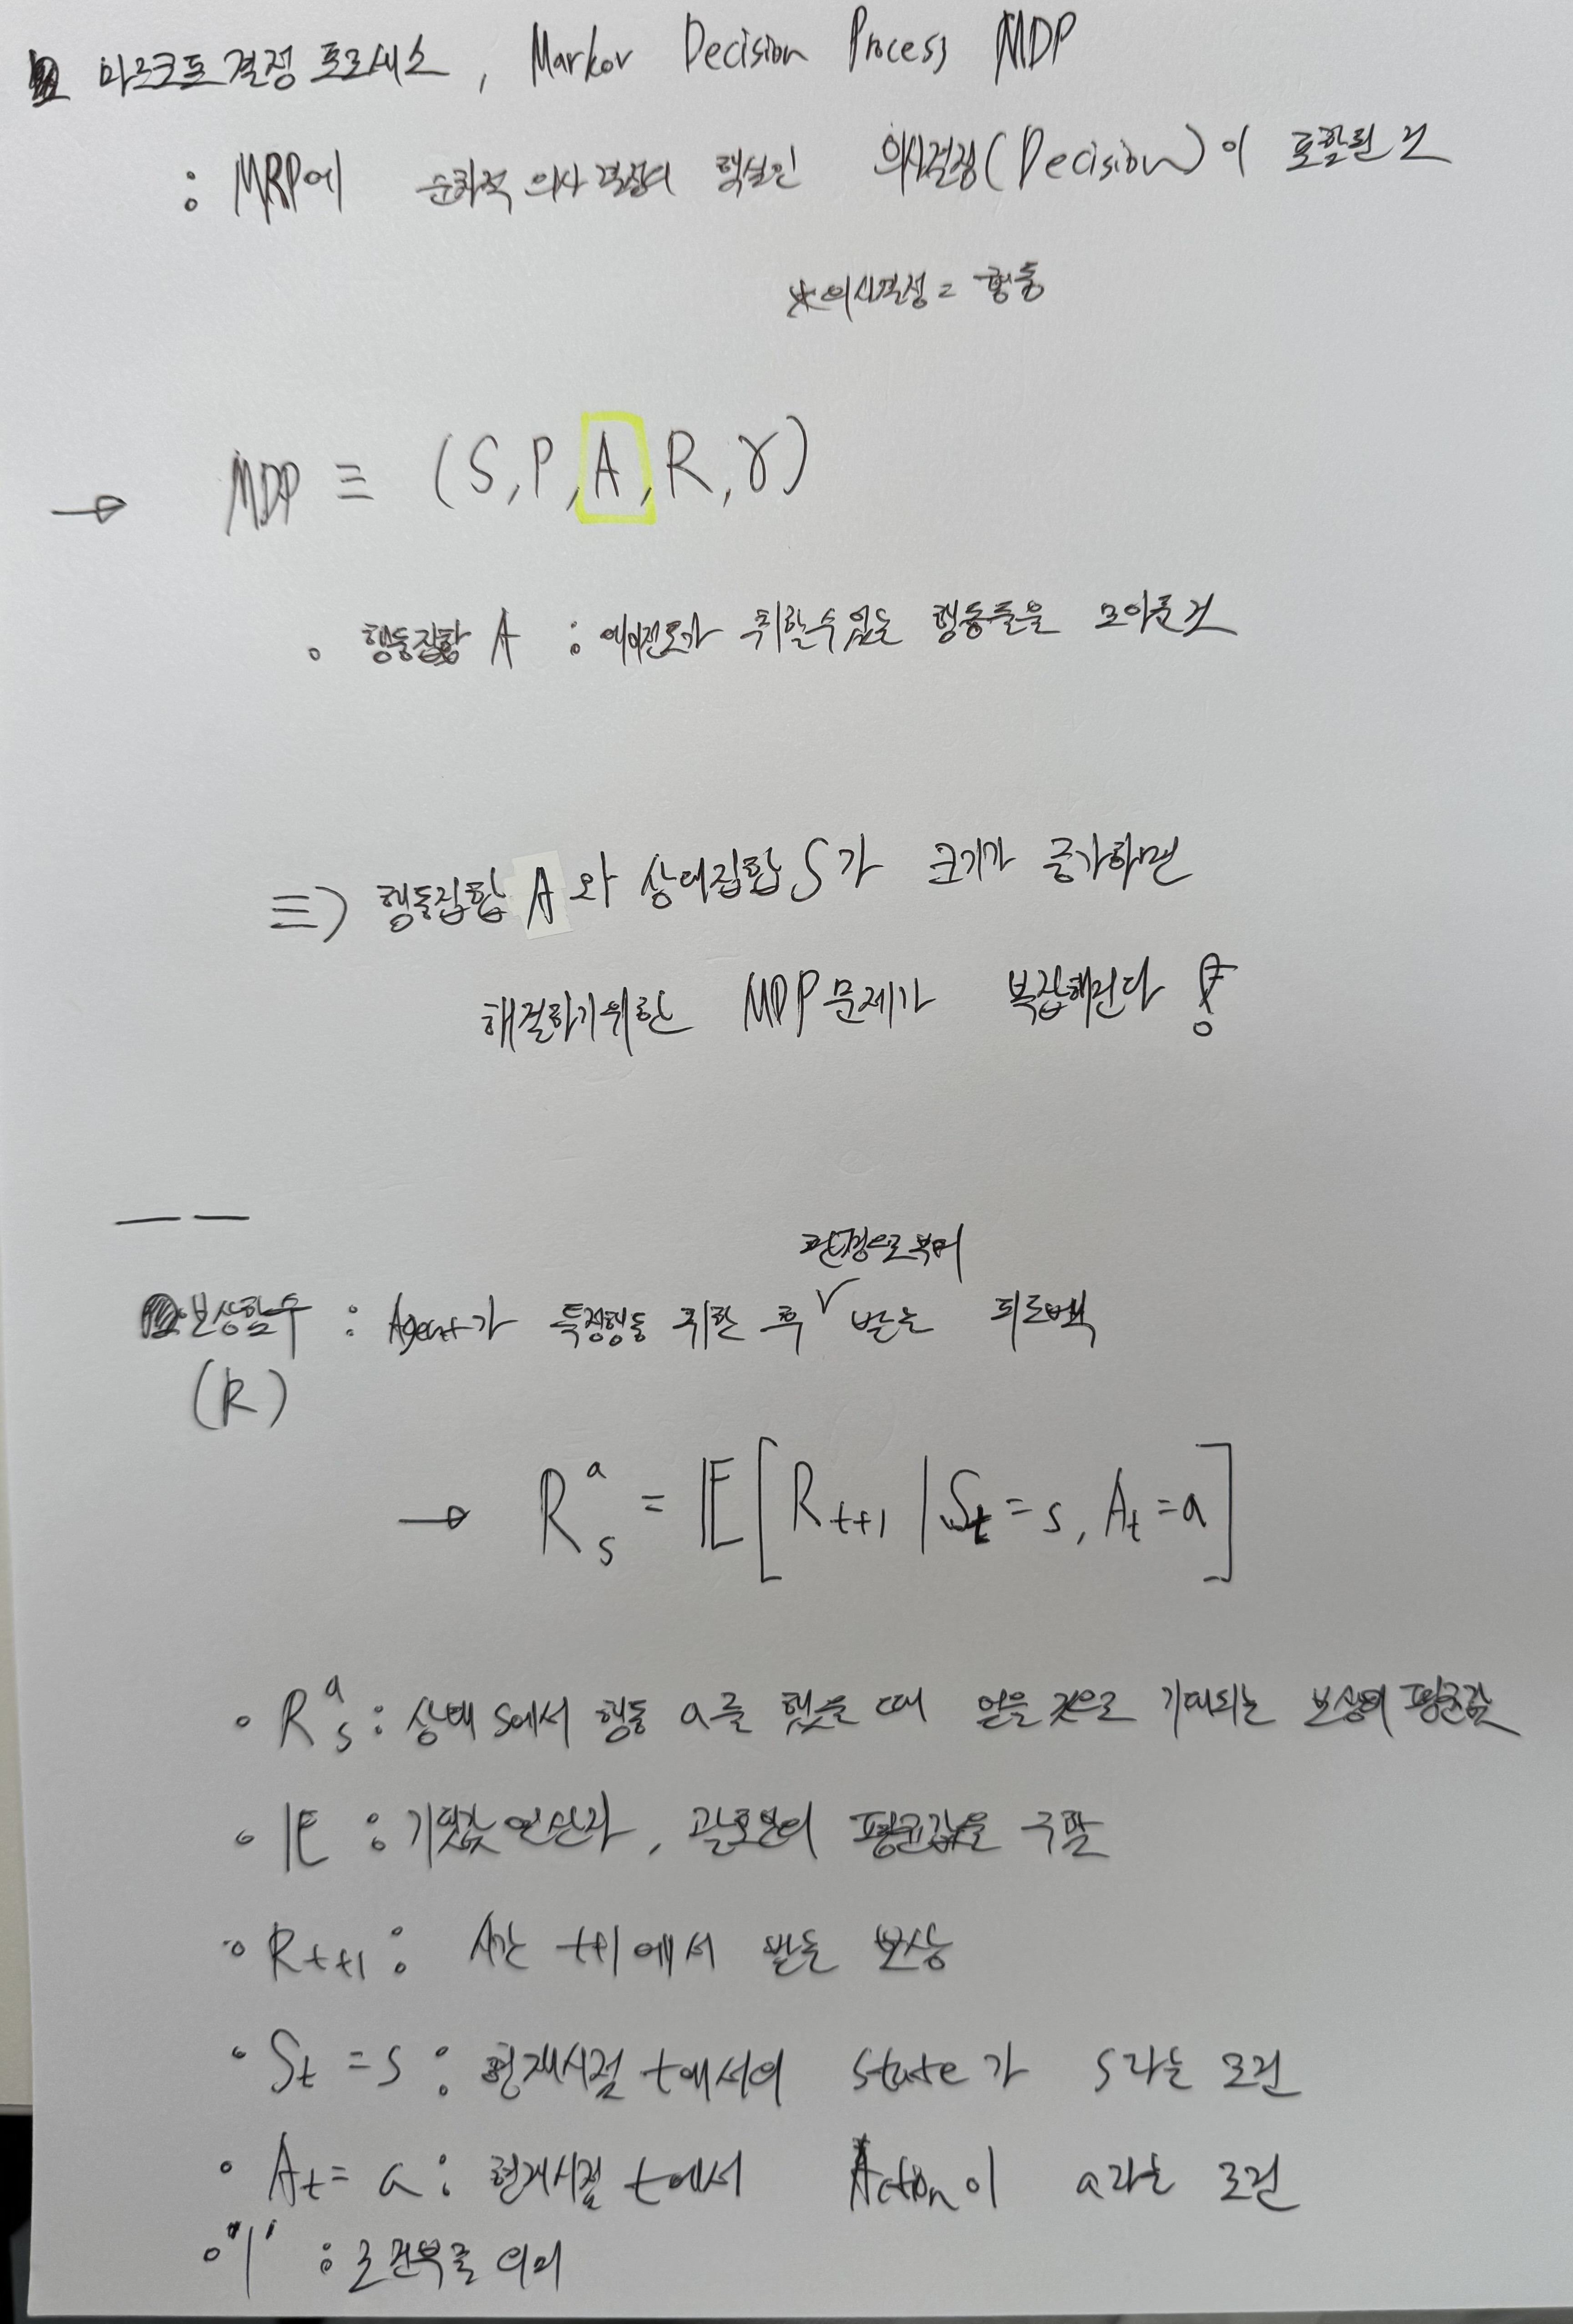 마르코프 결정 프로세스, Markov Decision Process MDP
: MRP에 순차적 의사 결정의 핵심인 의사결정(Decision)이 포함된 것
*의사결정 = 행동
→ MDP ≡ (S, P, A, R, γ)
• 행동집합 A : 에이전트가 취할수있는 행동들을 모아둔것
≡) 행동집합 A와 상태집합 S가 크기가 증가하면
해결하기위한 MDP 문제가 복잡해진다!
환경으로부터
보상함수 : Agent가 특정행동 취한 후 ∨ 받는 피드백
(R)
→ R_s^a = 𝔼[R_{t+1} | S_t = s, A_t = a]
• R_s^a : 상태 s에서 행동 a를 했을 때 얻을 것으로 기대되는 보상의 평균값
• 𝔼 : 기댓값 연산자, 괄호안의 평균값을 구함
• R_{t+1} : 시간 t+1에서 받는 보상
• S_t = s : 현재시점 t에서의 state가 s라는 조건
• A_t = a : 현재시점 t에서 Action이 a라는 조건
• "|" : 조건부를 의미